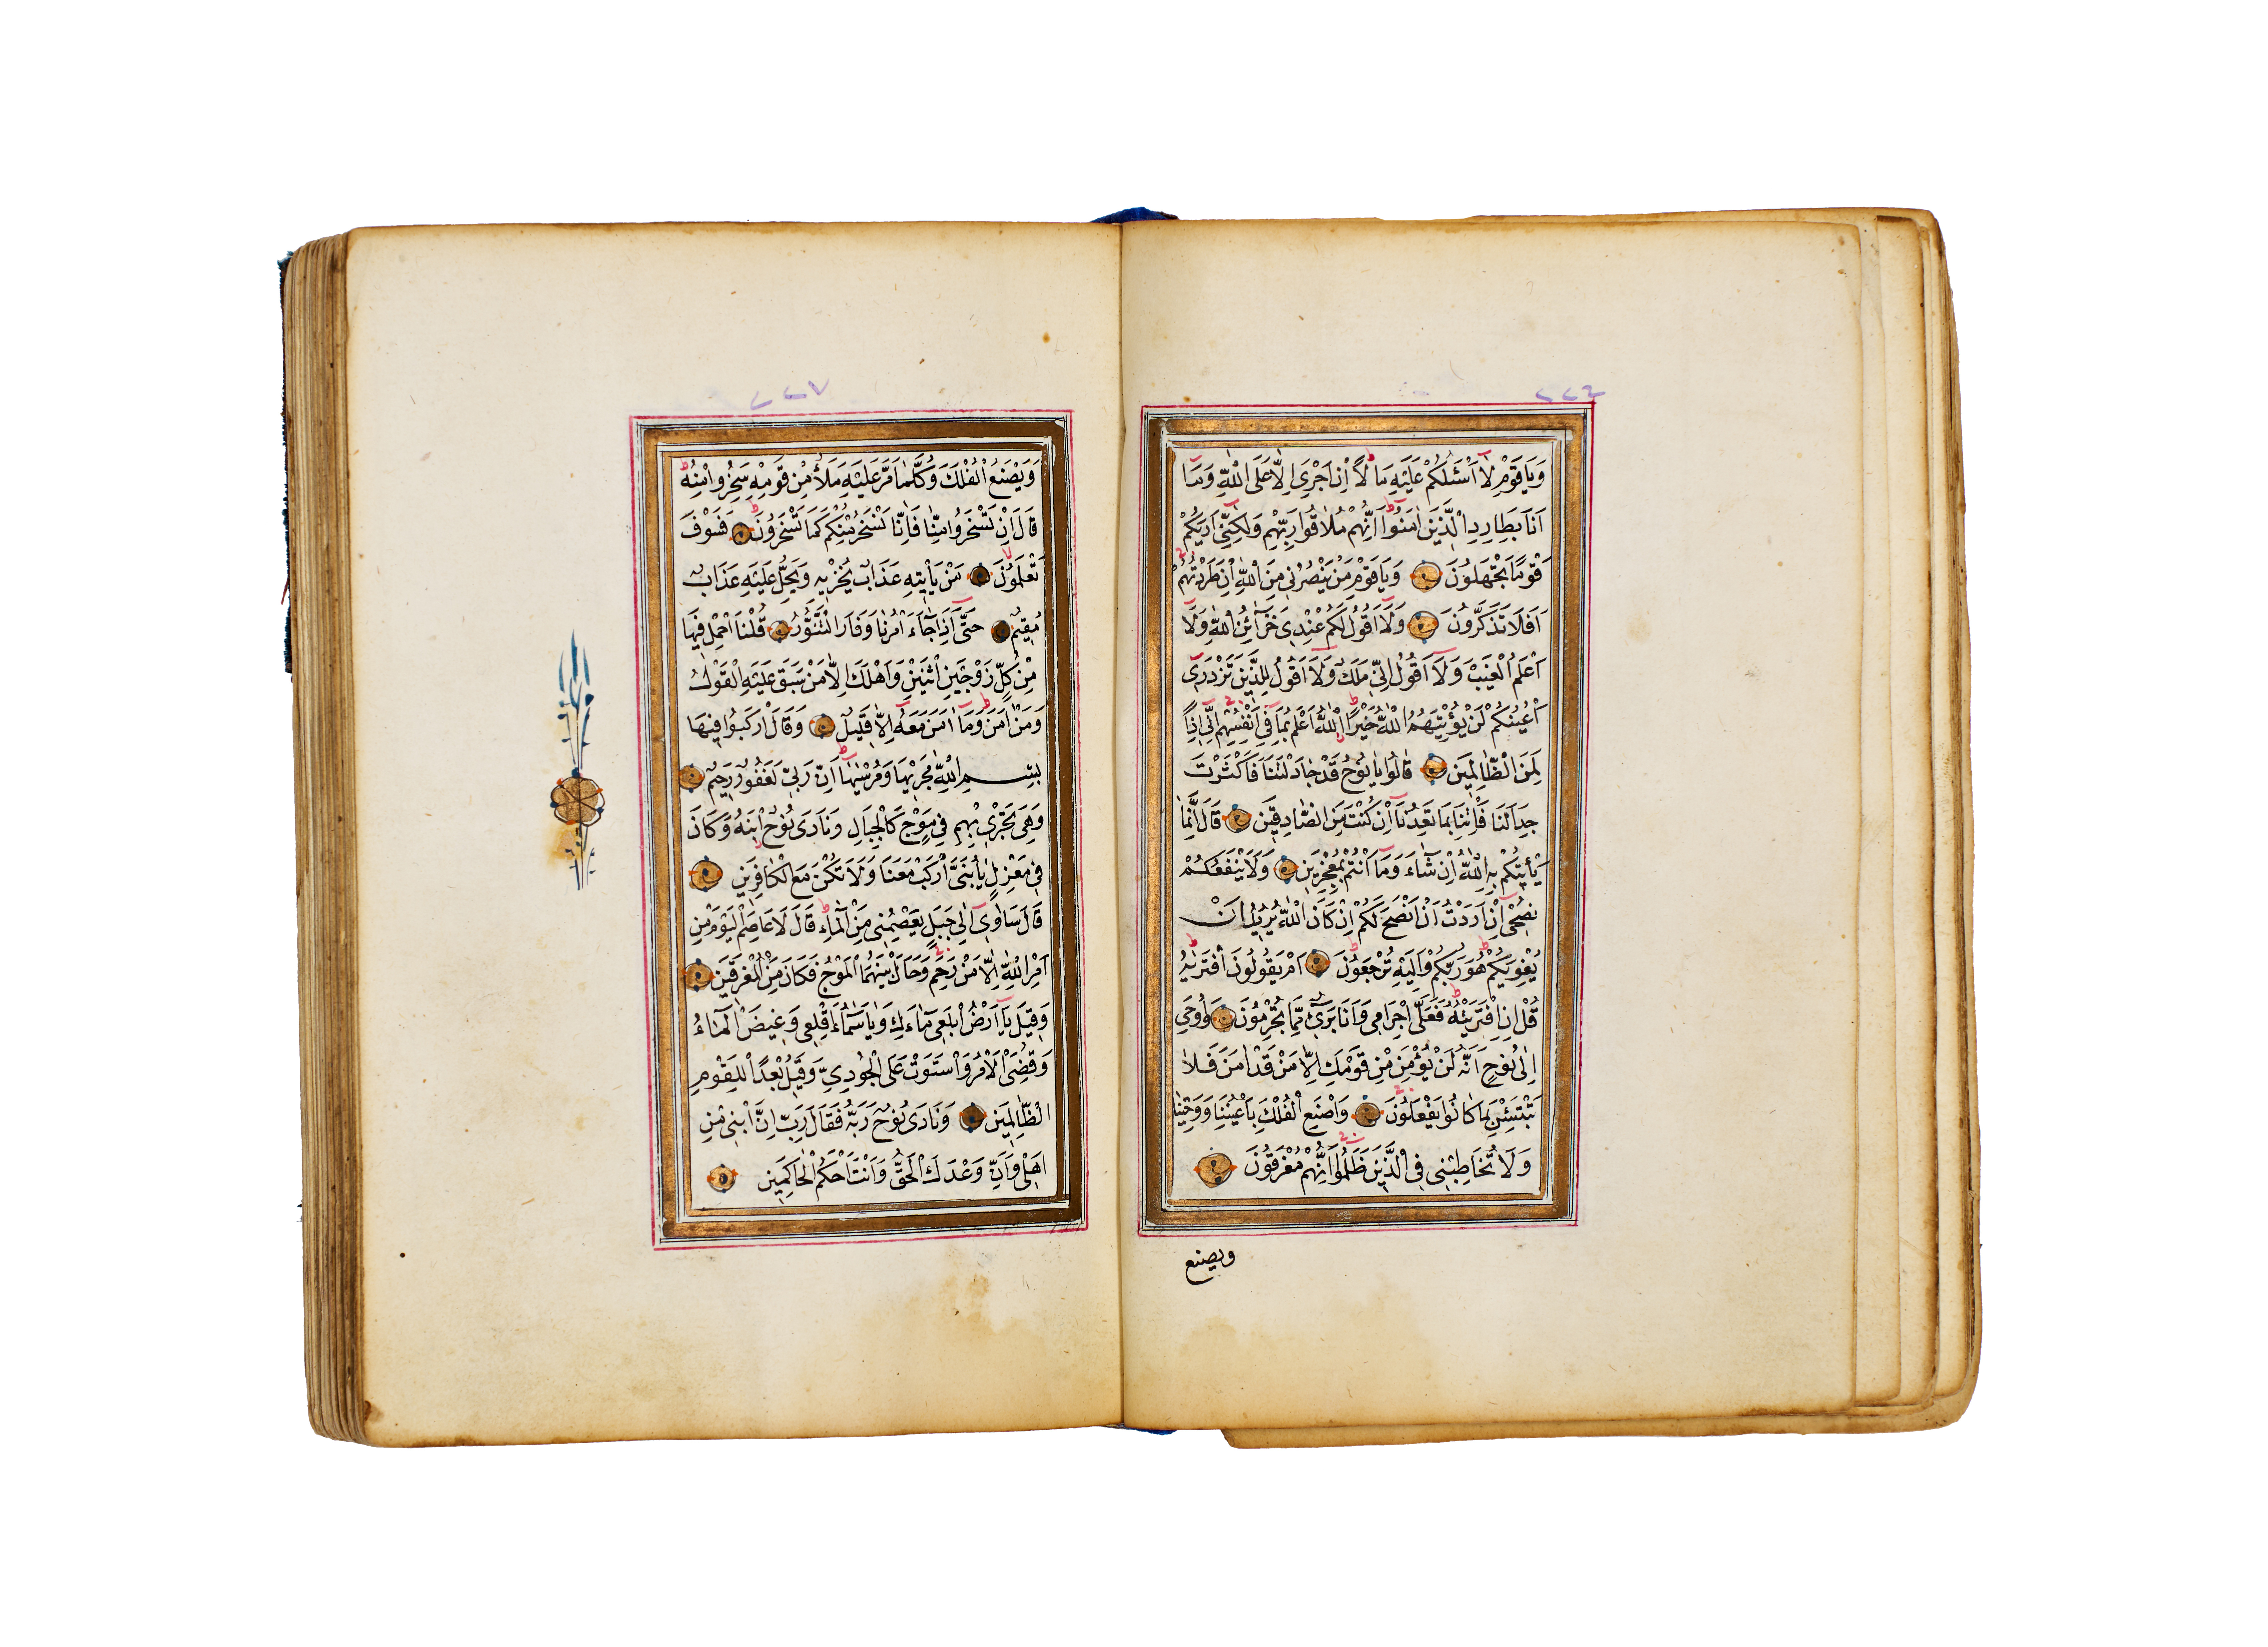 ٢٢٦
وَيَا قَوْمِ لَا اَسْئَلُكُمْ عَلَيْهِ مَالًا اِنْ اَجْرِيَ اِلَّا عَلَى اللّٰهِ وَمَا
اَنَا بِطَارِدِ الَّذِينَ اٰمَنُوا اِنَّهُمْ مُلَاقُوا رَبِّهِمْ وَلٰكِنِّي اَرٰيكُمْ
قَوْمًا تَجْهَلُونَ وَيَا قَوْمِ مَنْ يَنْصُرُنِي مِنَ اللّٰهِ اِنْ طَرَدْتُهُمْ
اَفَلَا تَذَكَّرُونَ وَلَا اَقُولُ لَكُمْ عِنْدِي خَزَائِنُ اللّٰهِ وَلَا
اَعْلَمُ الْغَيْبَ وَلَا اَقُولُ اِنِّي مَلَكٌ وَلَا اَقُولُ لِلَّذِينَ تَزْدَرِي
اَعْيُنُكُمْ لَنْ يُؤْتِيَهُمُ اللّٰهُ خَيْرًا اَللّٰهُ اَعْلَمُ بِمَا فِي اَنْفُسِهِمْ اِنِّي اِذًا
لَمِنَ الظَّالِمِينَ قَالُوا يَا نُوحُ قَدْ جَادَلْتَنَا فَاَكْثَرْتَ
جِدَالَنَا فَأْتِنَا بِمَا تَعِدُنَا اِنْ كُنْتَ مِنَ الصَّادِقِينَ قَالَ اِنَّمَا
يَأْتِيكُمْ بِهِ اللّٰهُ اِنْ شَاءَ وَمَا اَنْتُمْ بِمُعْجِزِينَ وَلَا يَنْفَعُكُمْ
نُصْحِي اِنْ اَرَدْتُ اَنْ اَنْصَحَ لَكُمْ اِنْ كَانَ اللّٰهُ يُرِيدُ اَنْ
يُغْوِيَكُمْ هُوَ رَبُّكُمْ وَاِلَيْهِ تُرْجَعُونَ اَمْ يَقُولُونَ افْتَرٰيهُ
قُلْ اِنِ افْتَرَيْتُهُ فَعَلَيَّ اِجْرَامِي وَاَنَا بَرِيءٌ مِمَّا تُجْرِمُونَ وَاُوحِيَ
اِلٰى نُوحٍ اَنَّهُ لَنْ يُؤْمِنَ مِنْ قَوْمِكَ اِلَّا مَنْ قَدْ اٰمَنَ فَلَا
تَبْتَئِسْ بِمَا كَانُوا يَفْعَلُونَ وَاصْنَعِ الْفُلْكَ بِاَعْيُنِنَا وَوَحْيِنَا
وَلَا تُخَاطِبْنِي فِي الَّذِينَ ظَلَمُوا اِنَّهُمْ مُغْرَقُونَ
ويصنع
٢٢٧
وَيَصْنَعُ الْفُلْكَ وَكُلَّمَا مَرَّ عَلَيْهِ مَلَأٌ مِنْ قَوْمِهِ سَخِرُوا مِنْهُ
قَالَ اِنْ تَسْخَرُوا مِنَّا فَاِنَّا نَسْخَرُ مِنْكُمْ كَمَا تَسْخَرُونَ فَسَوْفَ
تَعْلَمُونَ مَنْ يَأْتِيهِ عَذَابٌ يُخْزِيهِ وَيَحِلُّ عَلَيْهِ عَذَابٌ
مُقِيمٌ حَتّٰى اِذَا جَاءَ اَمْرُنَا وَفَارَ التَّنُّورُ قُلْنَا احْمِلْ فِيهَا
مِنْ كُلٍّ زَوْجَيْنِ اثْنَيْنِ وَاَهْلَكَ اِلَّا مَنْ سَبَقَ عَلَيْهِ الْقَوْلُ
وَمَنْ اٰمَنَ وَمَا اٰمَنَ مَعَهُ اِلَّا قَلِيلٌ وَقَالَ ارْكَبُوا فِيهَا
بِسْمِ اللّٰهِ مَجْرٰيهَا وَمُرْسٰيهَا اِنَّ رَبِّي لَغَفُورٌ رَحِيمٌ
وَهِيَ تَجْرِي بِهِمْ فِي مَوْجٍ كَالْجِبَالِ وَنَادٰى نُوحٌ ابْنَهُ وَكَانَ
فِي مَعْزِلٍ يَا بُنَيَّ ارْكَبْ مَعَنَا وَلَا تَكُنْ مَعَ الْكَافِرِينَ
قَالَ سَاٰوِي اِلٰى جَبَلٍ يَعْصِمُنِي مِنَ الْمَاءِ قَالَ لَا عَاصِمَ الْيَوْمَ مِنْ
اَمْرِ اللّٰهِ اِلَّا مَنْ رَحِمَ وَحَالَ بَيْنَهُمَا الْمَوْجُ فَكَانَ مِنَ الْمُغْرَقِينَ
وَقِيلَ يَا اَرْضُ ابْلَعِي مَاءَكِ وَيَا سَمَاءُ اَقْلِعِي وَغِيضَ الْمَاءُ
وَقُضِيَ الْاَمْرُ وَاسْتَوَتْ عَلَى الْجُودِيِّ وَقِيلَ بُعْدًا لِلْقَوْمِ
الظَّالِمِينَ وَنَادٰى نُوحٌ رَبَّهُ فَقَالَ رَبِّ اِنَّ ابْنِي مِنْ
اَهْلِي وَاِنَّ وَعْدَكَ الْحَقُّ وَاَنْتَ اَحْكَمُ الْحَاكِمِينَ